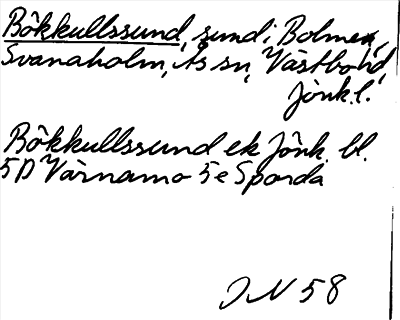 Bökkullssund, sund i Bolmen,
Svanaholm, Ås sn, Västbo hd,
Jönk. l.
Bökkullssund ek Jönk. bl.
5D Värnamo 5e Sporda
JN 58